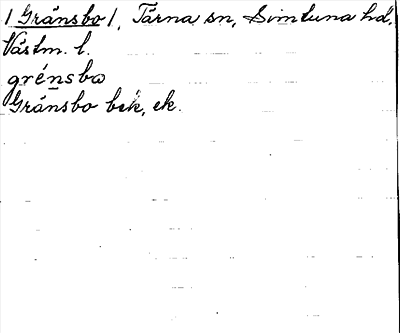 / Gränsbo /, Tärna sn, Simtuna hd,
Västm. l.
grénsbω
Gränsbo bek, ek.